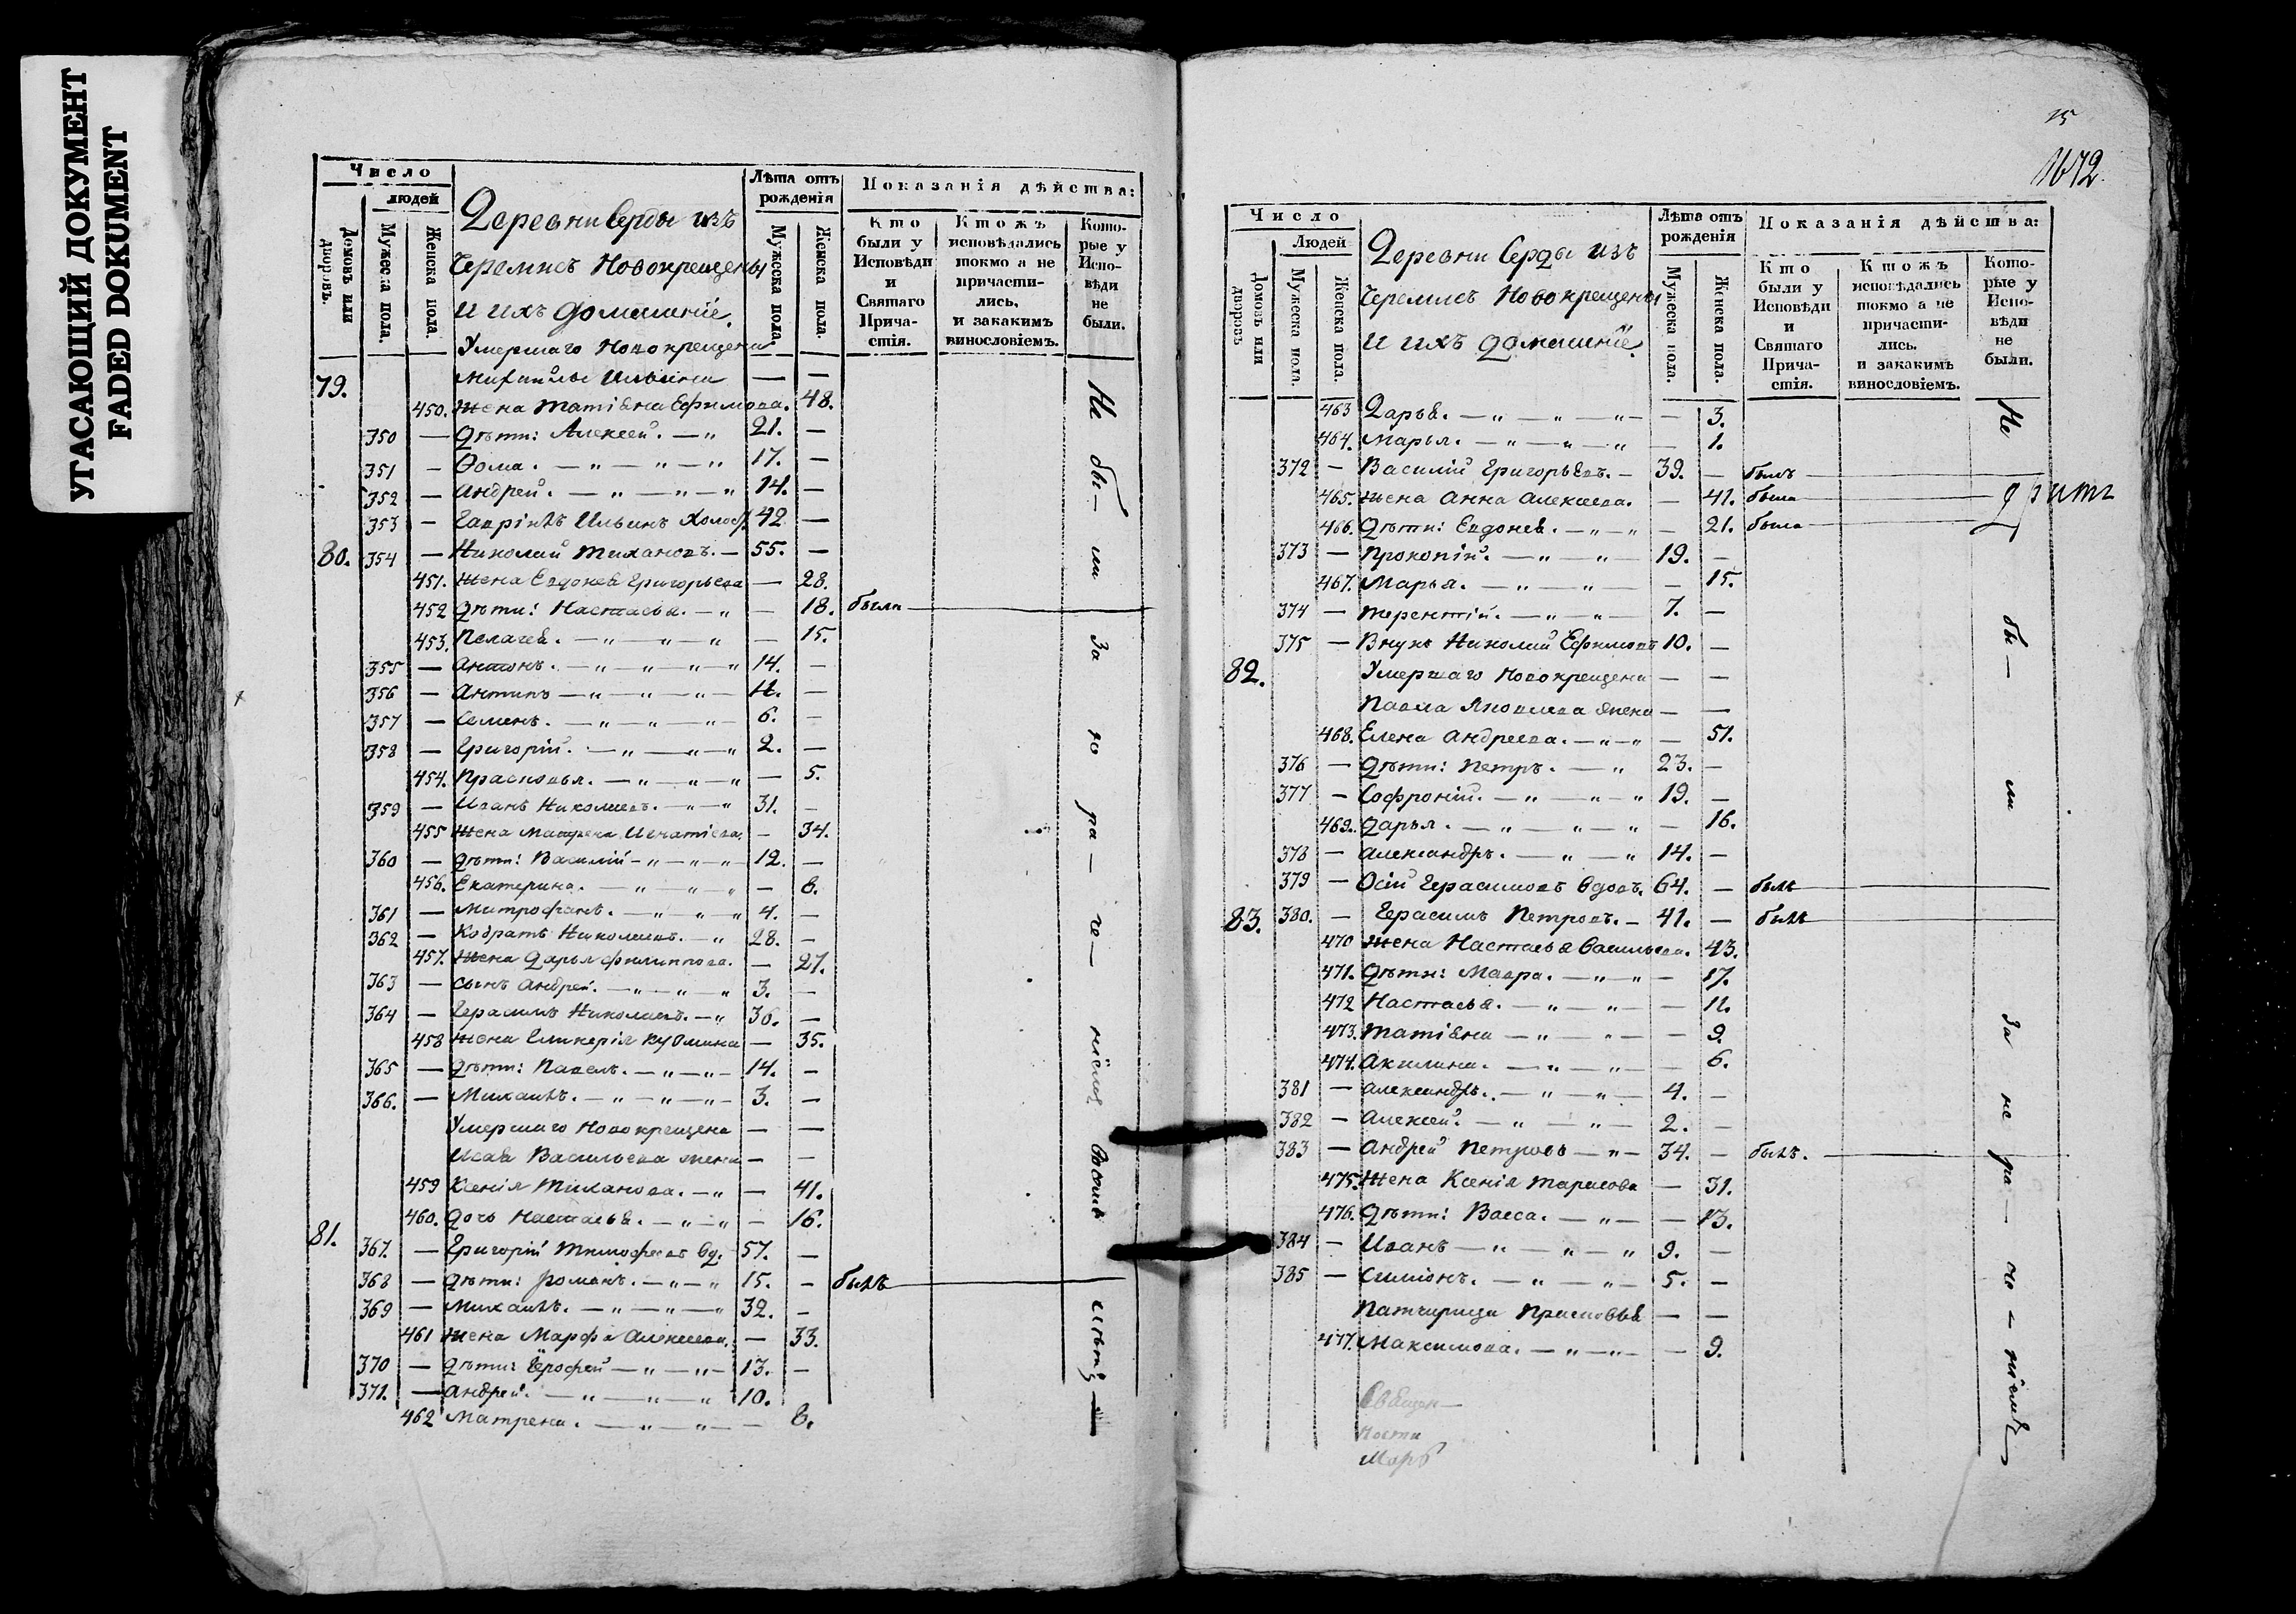 УГАСАЮЩИЙ ДОКУМЕНТ
FADED DOKUMENT
Число
людей
Домовъ или дворовъ.
Мужеска пола.
Женска пола.
Деревни Серды изъ
Черемисъ Новокрещены
и ихъ домашніе.
Лѣта отъ рожденія
Мужеска пола.
Женска пола.
Показанія дѣйства:
Кто были у Исповѣди и Святаго Причастія.
Ктожъ исповѣдались токмо а не причастились, и закакимъ винословіемъ.
Которые у Исповѣди не были.
Умершаго Новокрещена
79. Михайлы Ильина — —
450. Жена Татіяна Ефимова. 48.
350 — Дѣти: Алексей. — „ 21. —
351 — Ѳома. — „ — „ — „ 17. —
352 — Андрей. — „ — „ — „ 14. —
353 — Гаврiилъ Ильинъ Холост 42 —
80. 354 — Николай Тихановъ. — 55. —
451. Жена Евдокея Григорьева — 28.
452 Дѣти: Настасья. — „ — 18. была
453. Пелагея. — „ — „ — „ — 15.
355 — Антонъ. — „ — „ — „ 14. —
356 — Антипъ — „ — „ — „ — 11. —
357 — Семенъ. — „ — „ — „ — 6. —
358 — Григорій. — „ — „ — „ 2. —
454. Прасковья. — „ — „ — „ — 5.
359 — Иванъ Николаевъ. — „ — „ 31. —
455 Жена Матрена Игнатіева. — 34.
360 — Дѣти: Василій — „ — „ — „ 12. —
456. Екатерина. — „ — „ — „ — 8.
361 — Митрофанъ. — „ — „ — „ 4. —
362 — Кодратъ Николаевъ. — „ 28. —
457. Жена Дарья Филиппова. — 27.
363 — Сынъ Андрей. — „ — „ — „ 3. —
364 — Герасимъ Николаевъ. — „ 36. —
458 Жена Гликерія Кузмина — 35.
365 — Дѣти: Павелъ. — „ — „ — 14. —
366. — Михаилъ. — „ — „ — „ — 3. —
Умершаго Новокрещена — —
Исая Васильева жена — —
459 Ксенія Тиханова. — „ — 41.
460. Дочь Настасья. — „ — „ — 16.
81. 367. — Григорій Тимофеевъ вд. 57. —
368 — Дѣти: Романъ. — „ — „ 15. — былъ
369 — Михаилъ. — „ — „ — „ 32. —
461 Жена Марфа Алексеева. — 33.
370 — Дѣти: Ерофей — „ — „ — 13. —
371. — Андрей. — „ — „ — „ 10. —
462 Матрена. — „ — „ — — 8.
Не бы — ли За не ра —
15
1672
Число
Людей
Домовъ или дворовъ
Мужеска пола.
Женска пола.
Деревни Серды изъ
Черемисъ Новокрещены
и ихъ домашніе.
Лѣта отъ рожденія
Мужеска пола.
Женска пола.
Показанія дѣйства:
Кто были у Исповѣди и Святаго Причастія.
Ктожъ исповѣдались токмо а не причастились. и закакимъ винословіемъ.
Которые у Исповѣди не были.
463 Дарья. — „ — „ — „ — — 3.
464. Марья. — „ — „ — „ — 1.
372 — Василій Григорьевъ. — 39. — былъ
465. Жена Анна Алексеева. — 41. была
466. Дѣти: Евдокея. — „ — „ — 21. была
373 — Прокопій. — „ — „ — 19. —
467. Марья. — „ — „ — — 15.
374 — Терентій. — „ — „ 7. —
375 — Внукъ Николай Ефимовъ 10. —
82. Умершаго Новокрещена — —
Павла Яковлева жена — —
468. Елена Андреева. — „ — „ — 51.
376 — Дѣти: Петръ. — „ 23. —
377 — Софроній. — „ — „ — „ 19. —
469. Дарья. — „ — „ — „ — 16.
378 — Александръ. — „ — „ 14. —
379 — Осій Герасимовъ вдовъ. 64. — былъ
83. 380. — Герасимъ Петровъ. — 41. — былъ
470 Жена Настасья Васильева. 43.
471. Дѣти: Мавра. — „ — „ — 17.
472 Настасья. — „ — „ — — 11.
473. Татіяна — „ — „ — — 9.
474. Акилина. — „ — „ — — 6.
381 — Александръ. — „ — „ — 4. —
382 — Алексей. — „ — „ — 2. —
383 — Андрей Петровъ — „ — 34. — былъ.
475. Жена Ксенія Тарасова — 31.
476. Дѣти: Васса. — „ — — 13.
384 — Иванъ — „ — „ — „ 9. —
385 — Симіонъ. — „ — „ — 5. —
Патчирица Прасковья — —
477. Максимова. — „ — „ — — 9.
Не бы — ли За не ра —